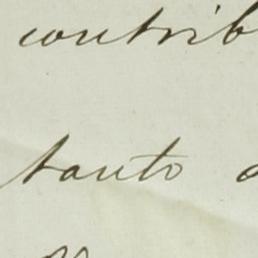 contrib
tanto